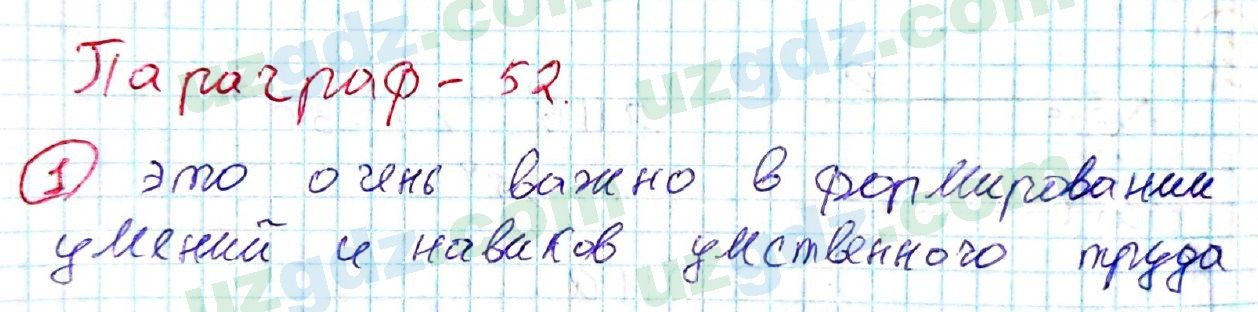 Параграф - 52.
1 это очень важно в формировании
умений и навиков умственного труда
uzgdz.com